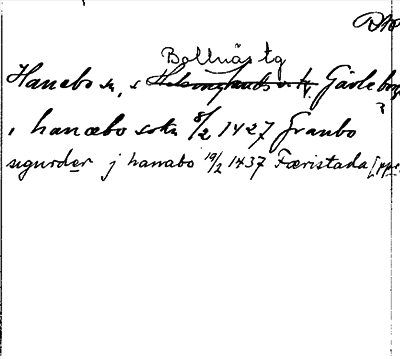 Bollnäs tg
Hanebo sn, s Helsinglands v. tg. Gävleborg
i hanæbo sokn 8/2 1427 Granbo
?
sigurder j hanabo 19/2 1437 Færistada